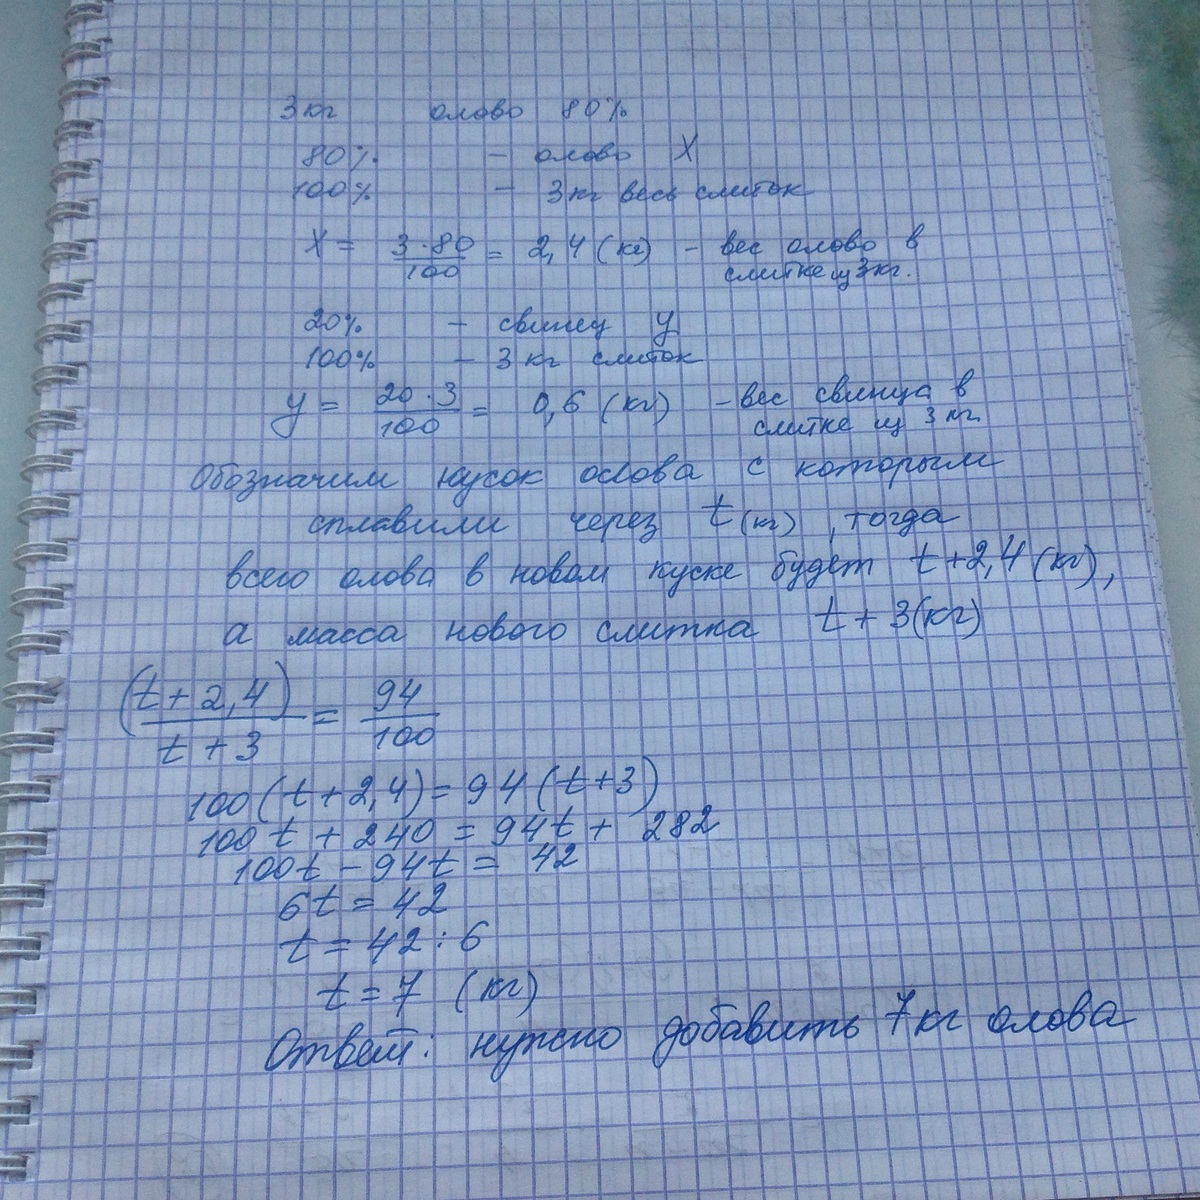 3 кг олово 80%
80% – олово X
100% – 3 кг весь слиток
X = 3·80/100 = 2,4 (кг) – вес олово в
слитке из 3 кг.
20% – свинец y
100% – 3 кг слиток
y = 20·3/100 = 0,6 (кг) – вес свинца в
слитке из 3 кг.
Обозначим кусок ослова с которым
сплавили через t (кг), тогда
всего олова в новом куске будет t+2,4 (кг),
а масса нового слитка t+3(кг)
(t+2,4)/t+3 = 94/100
100(t+2,4)=94(t+3)
100t+240=94t+282
100t-94t=42
6t=42
t=42:6
t=7 (кг)
Ответ: нужно добавить 7 кг олова